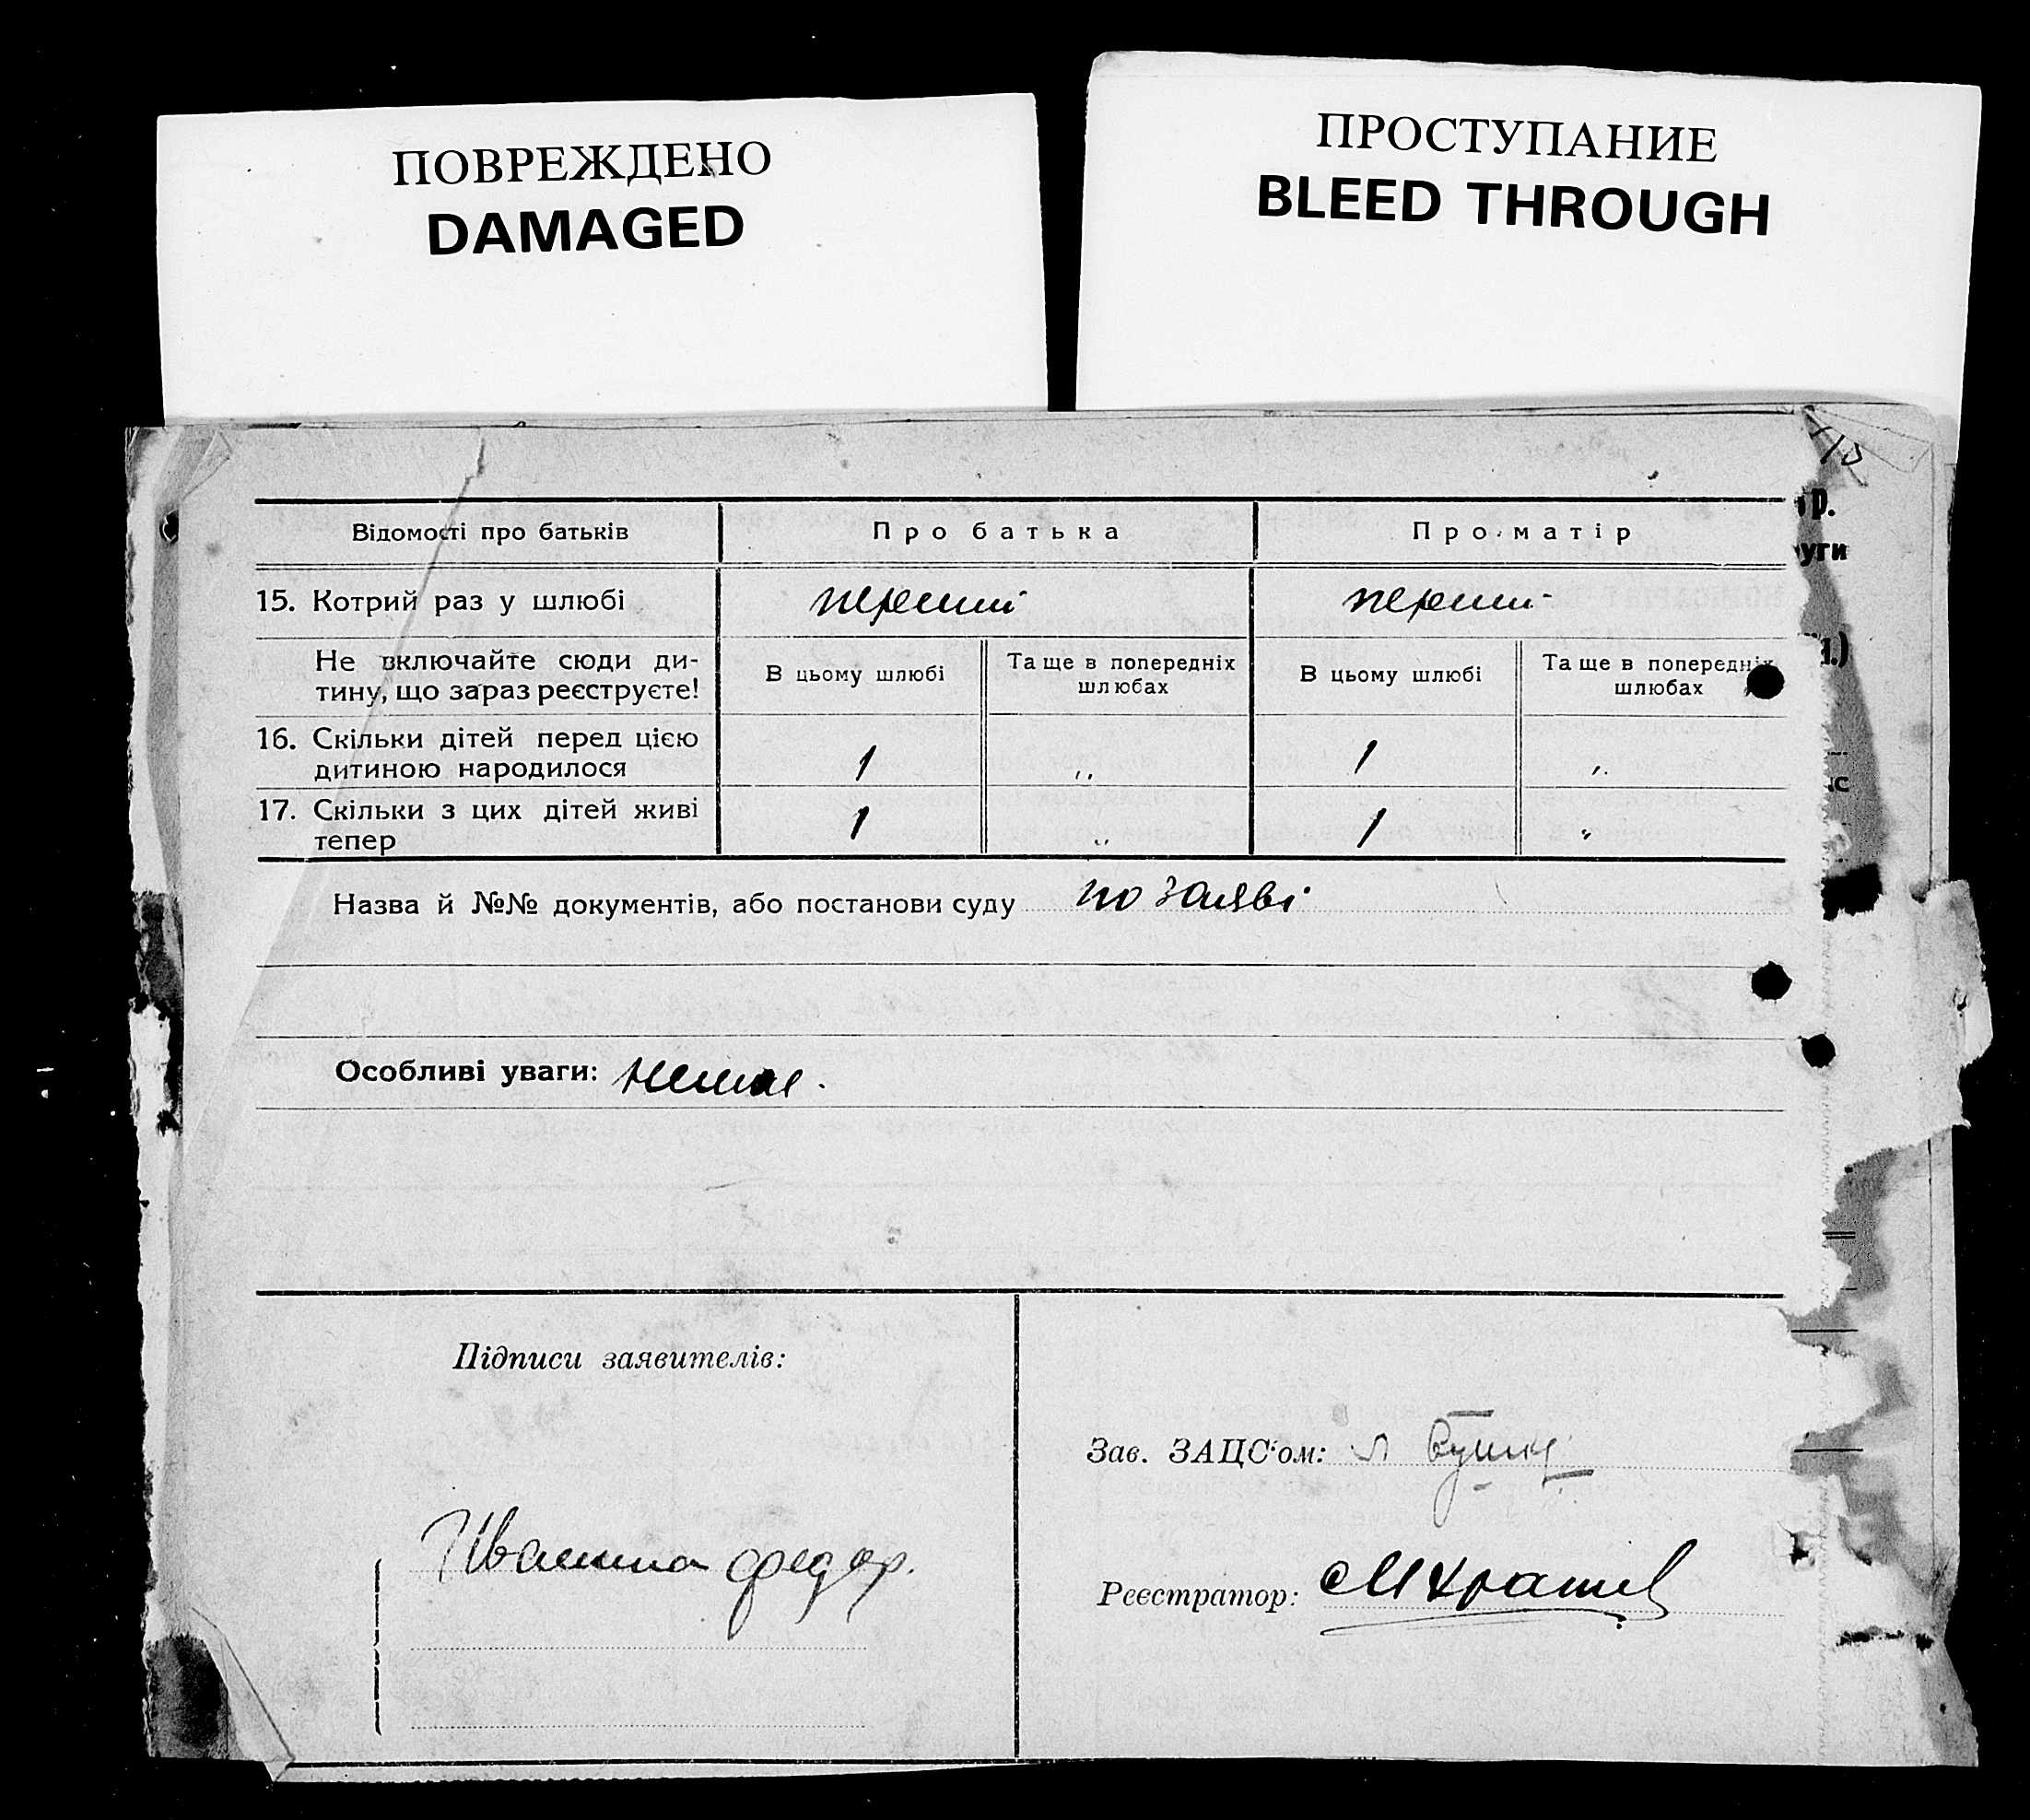 ПОВРЕЖДЕНО
DAMAGED
ПРОСТУПАНИЕ
BLEED THROUGH
Відомості про батьків
Про батька
Про матір
15. Котрий раз у шлюбі
перший
перший
Не включайте сюди ди-
тину, що зараз реєструєте!
В цьому шлюбі
Та ще в попередніх
шлюбах
В цьому шлюбі
Та ще в попередніх
шлюбах
16. Скільки дітей перед цією
дитиною народилося
1
„
1
„
17. Скільки з цих дітей живі
тепер
1
„
1
„
Назва й №№ документів, або постанови суду по заяві
Особливі уваги: немає.
Підписи заявителів:
Зав. ЗАЦС'ом:
Реєстратор:
р.
уги